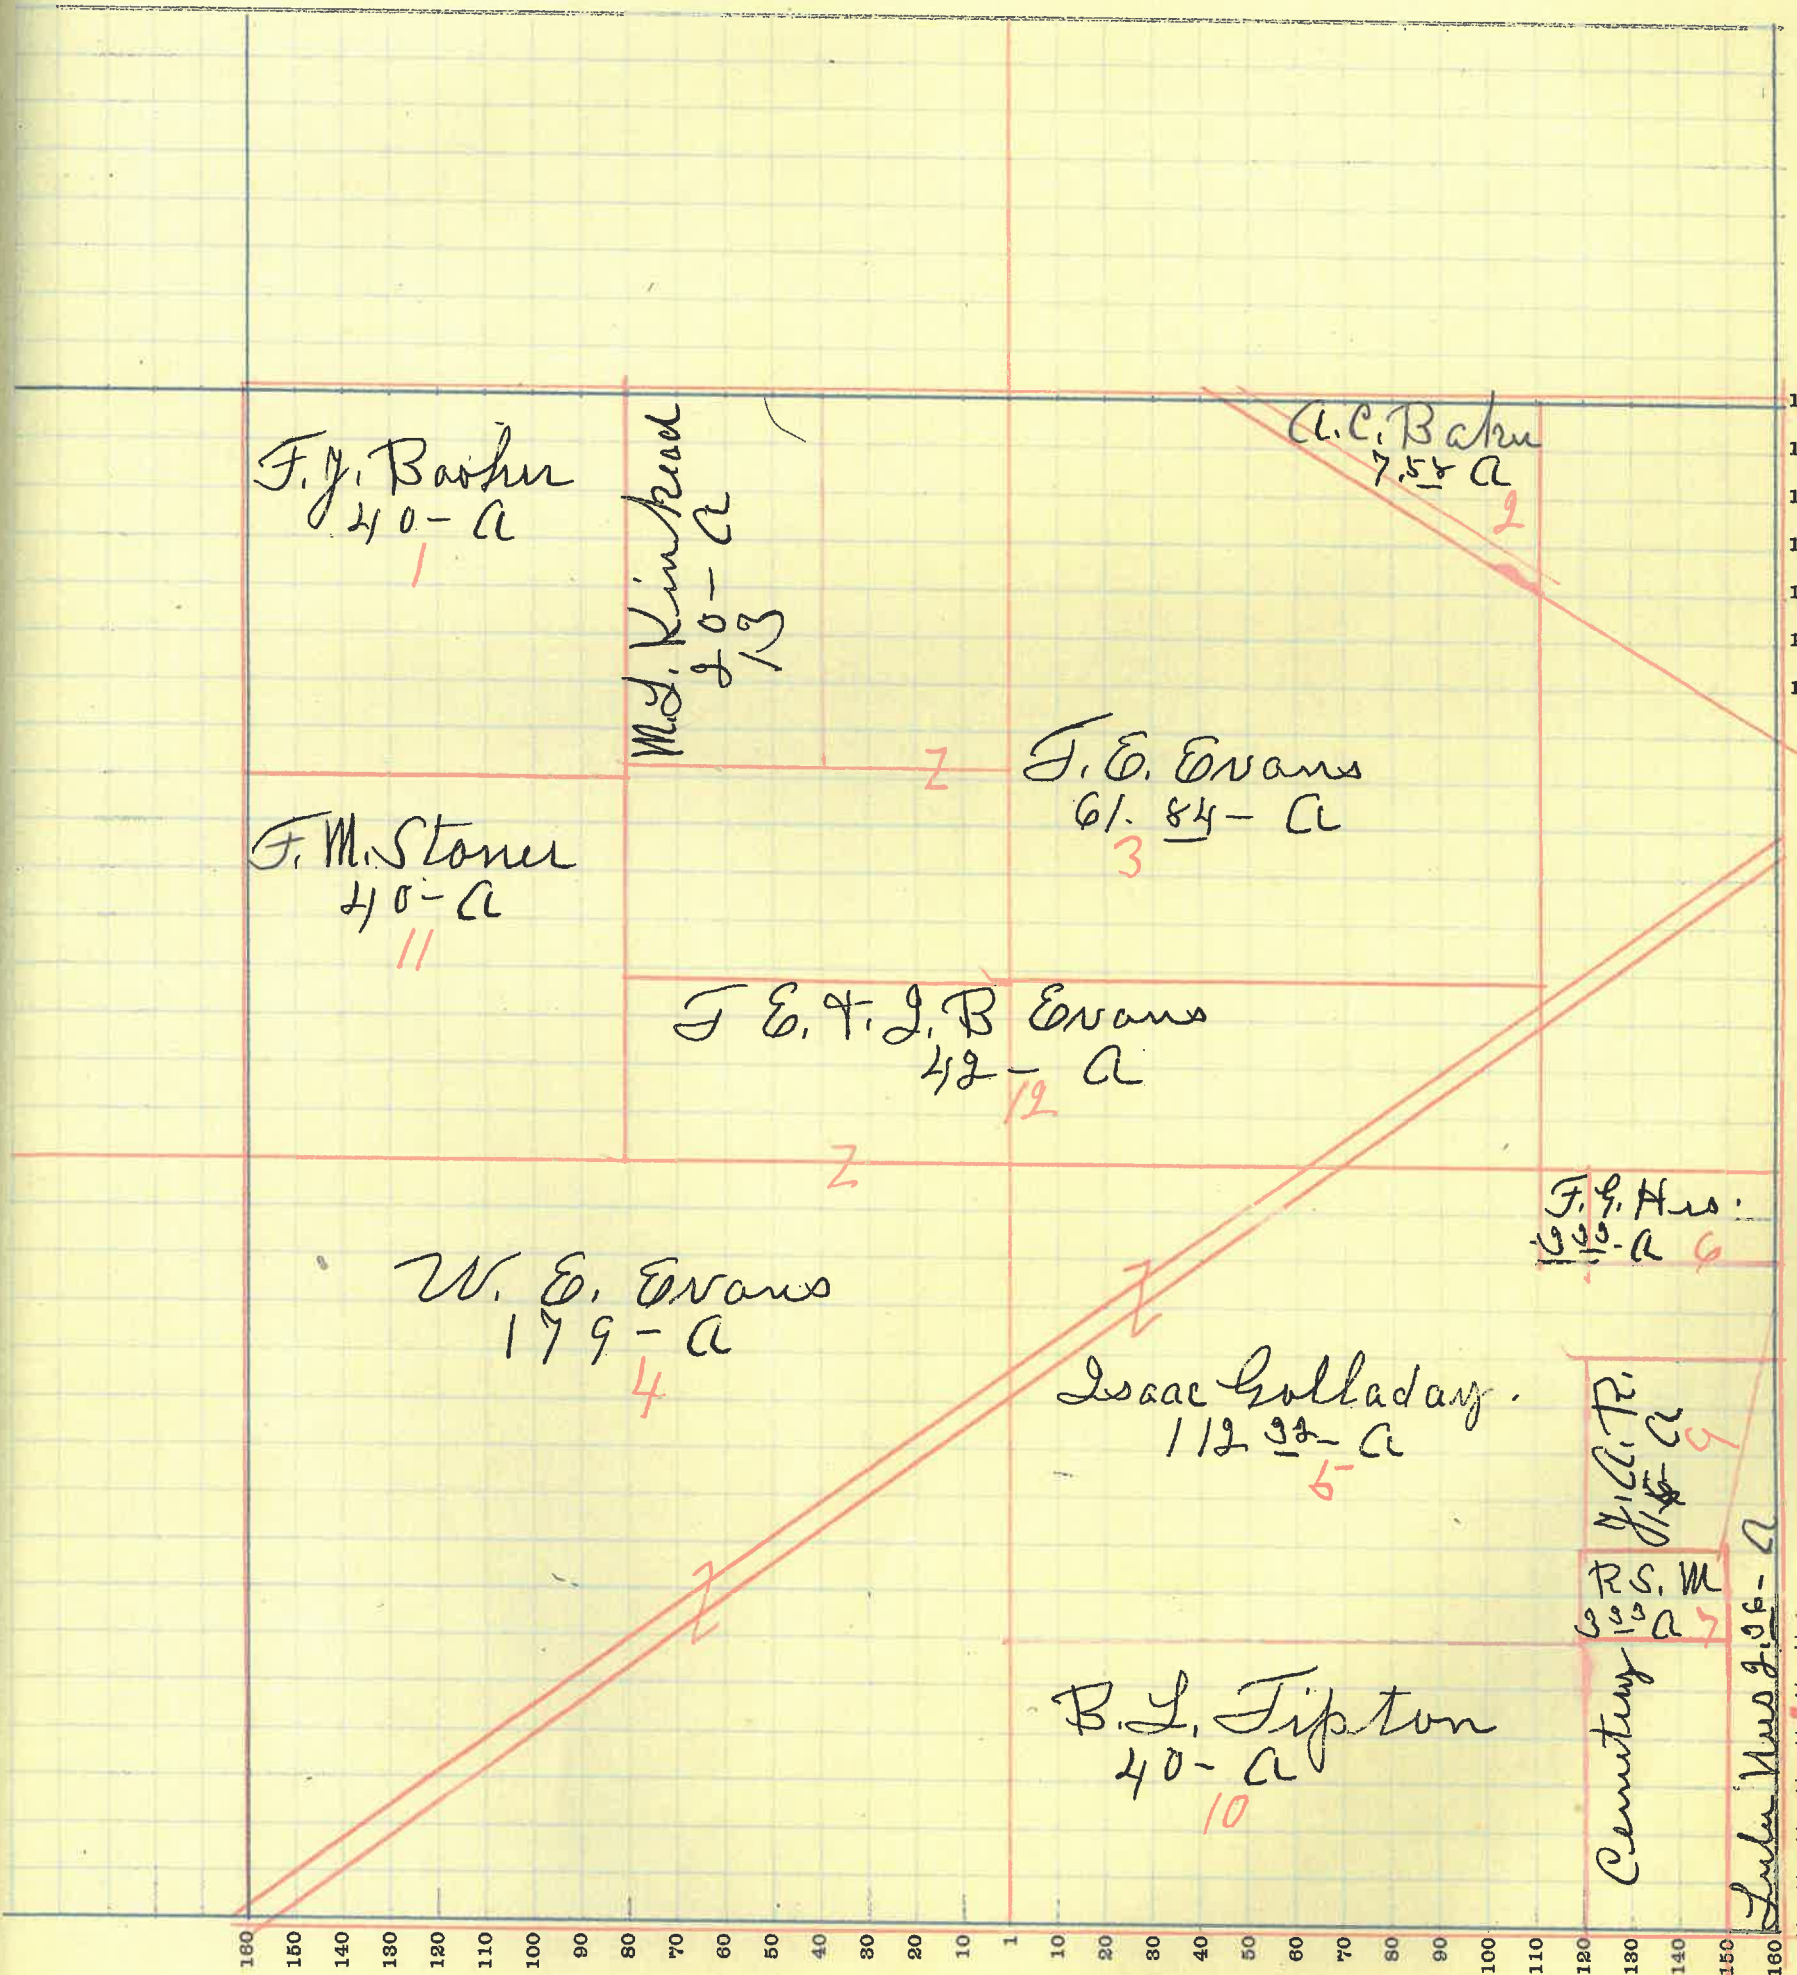 F.J. Booher
40- A
1
M.L. Kinkead
20- A
13
A.C. Baker
7.58 A
2
F.E. Evans
61.84- A
3
Z
F.M. Stoner
40- A
11
F E. & I.B Evans
42- A
12
Z
W. E. Evans
179- A
4
F.G. Hes.
A 6
Z
Isaac Golladay.
112 32- A
5
J.A.R.
A
9
Z
R.S.M
A 7
B.L. Tipton
40- A
10
Cemetery
160 150 140 130 120 110 100 90 80 70 60 50 40 30 20 10 1 10 20 30 40 50 60 70 80 90 100 110 120 130 140 150 160